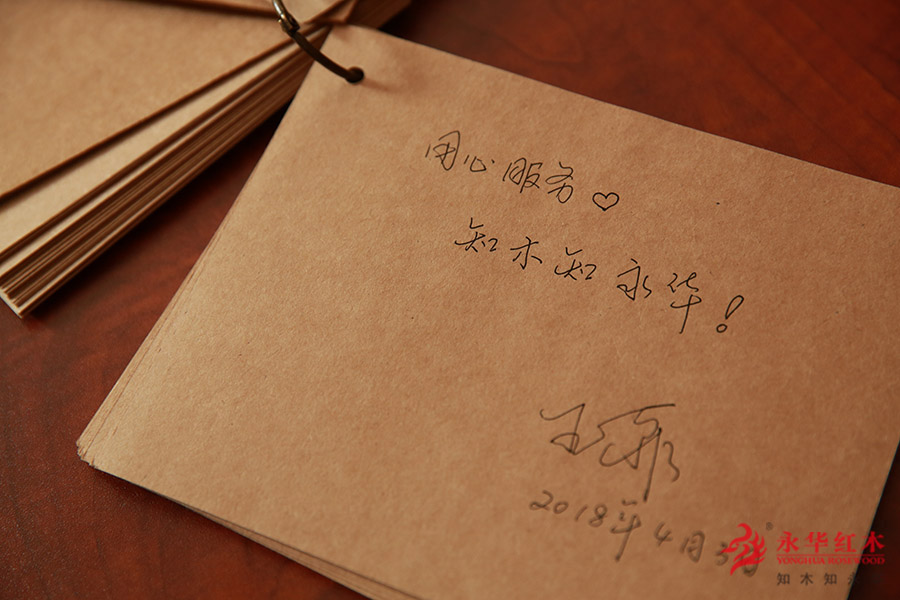 用心服务♡
知木知永华!
2018年4月
永华红木
YONGHUA ROSEWOOD
知木知永